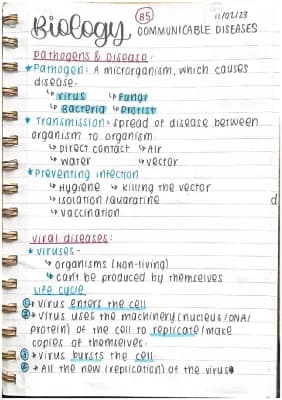 Biology
85
11/02/23
COMMUNICABLE DISEASES
pathogens & disease:
*Pathogen: A microorganism, which causes
disease.
↳ virus ↳ Fungi
↳ Bacteria ↳ Protist
*Transmission: spread of disease between
organism to organism.
↳ Direct contact ↳ Air
↳ water ↳ vector
*Preventing infection
↳ Hygiene ↳ killing the vector
↳ isolation/quaratine
↳ vaccination
d
viral diseases:
*viruses -
↳ organisms (non-living)
↳ can't be produced by themselves
Life cycle
①→ virus enters the cell
②→ virus uses the machinery (nucleus/DNA/
protein) of the cell to replicate/make
copies of themselves.
③→ virus bursts the cell.
④→ All the new (replication) of the virus